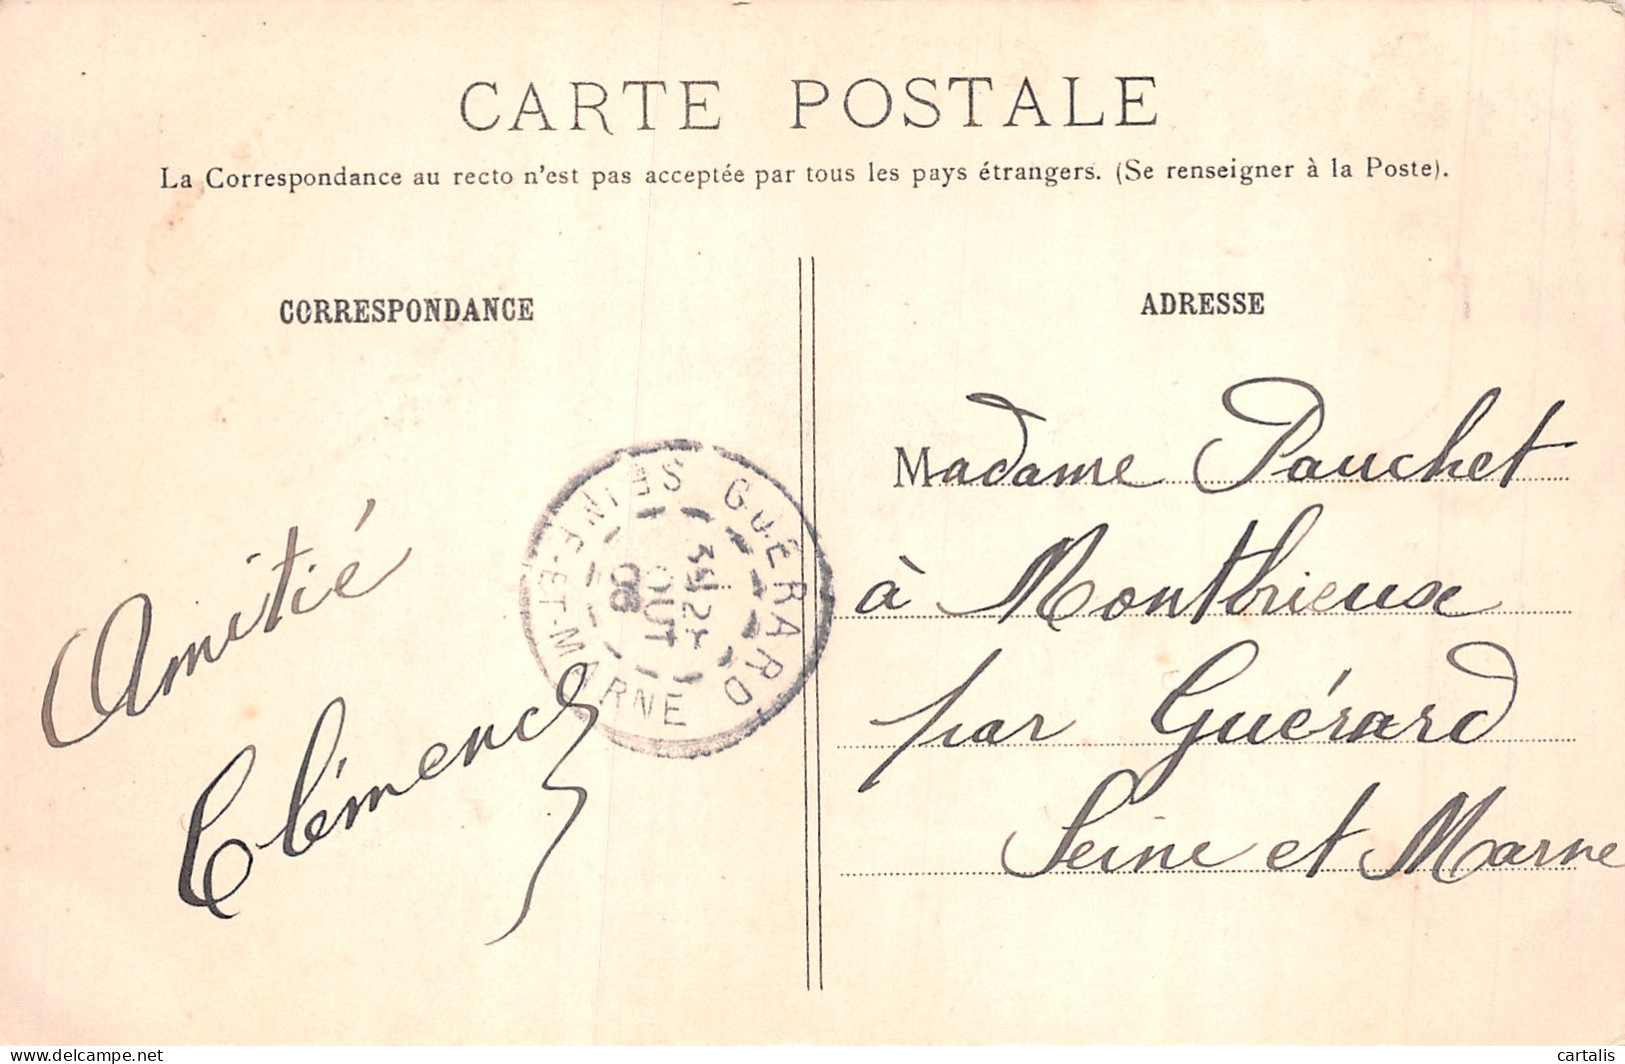 CARTE POSTALE
La Correspondance au recto n'est pas acceptée par tous les pays étrangers. (Se renseigner à la Poste).
CORRESPONDANCE
Amitié
Clémence
GUÉRARD
SEINE-ET-MARNE
OUT
08
ADRESSE
Madame Pauchet
à Monthrieux
par Guérard
Seine et Marne
delcampe.net
cartalis